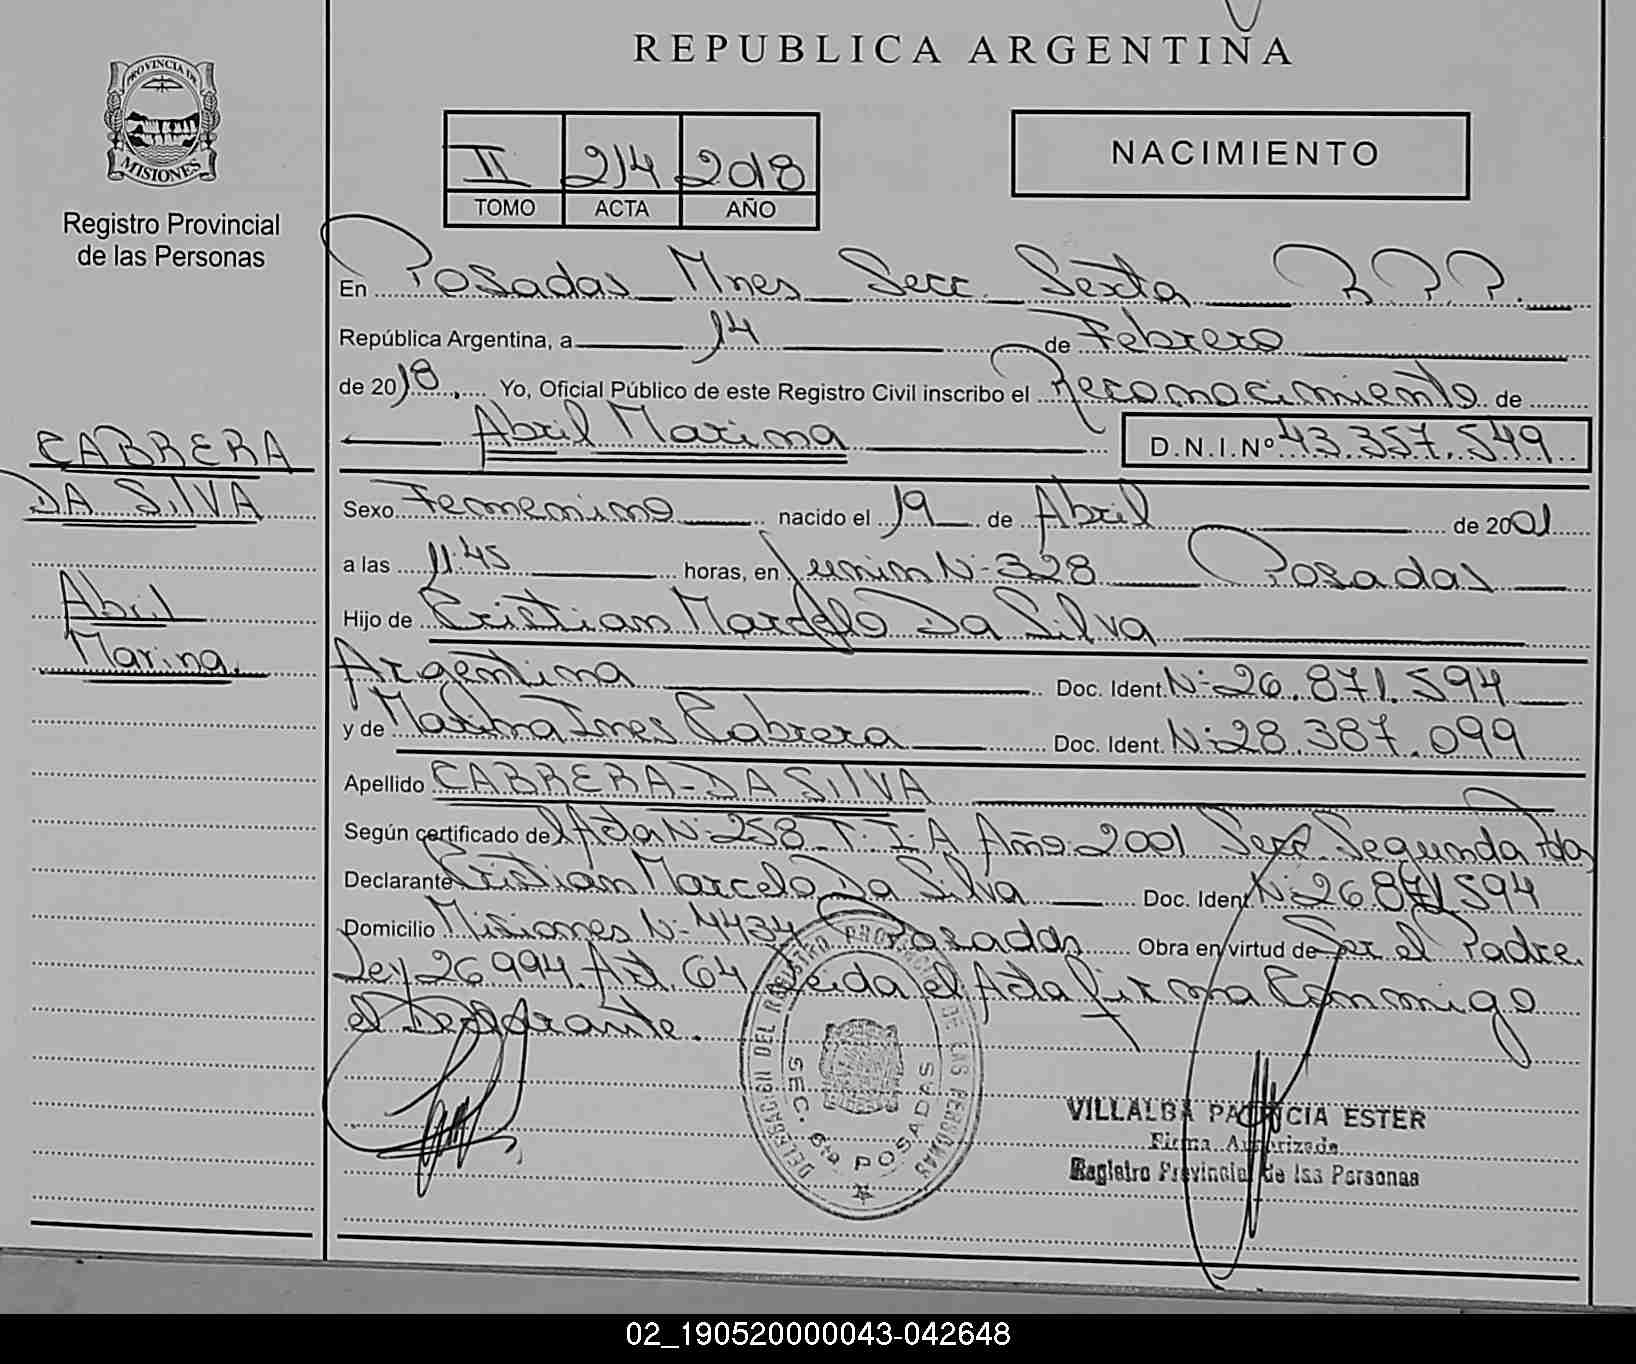 REPUBLICA ARGENTINA
PROVINCIA DE
MISIONES
Registro Provincial
de las Personas
II 214 2018
TOMO ACTA AÑO
NACIMIENTO
En Posadas Mnes Secc. Sexta R.P.P.
República Argentina, a 14 de Febrero
de 2018. Yo, Oficial Público de este Registro Civil inscribo el Reconocimiento de
Abril Marina D.N.I.Nº 43.357.549
CABRERA
DA SILVA
Abril
Marina.
Sexo Femenino nacido el 19 de Abril de 2001
a las 11:45 horas, en Junin Nº 328 Posadas
Hijo de Cristian Marcelo Da Silva
Argentina Doc. Ident. Nº 26.871.594
y de Marina Ines Cabrera Doc. Ident. Nº 28.387.099
Apellido CABRERA-DA SILVA
Según certificado del Acta Nº 258 T. I. A Año 2001 Secc. Segunda Pdas
Declarante Cristian Marcelo Da Silva Doc. Ident. Nº 26.871.594
Domicilio Misiones Nº 4434 Posadas Obra en virtud de Ser el Padre.
Ley 26994. Art. 64 Leida el Acta firma Conmigo
el Declarante.
DELEGACION DEL REGISTRO PROVINCIAL DE LAS PERSONAS
SEC. 6ta POSADAS
VILLALBA PATRICIA ESTER
Firma Autorizada
Registro Provincial de las Personas
02_190520000043-042648